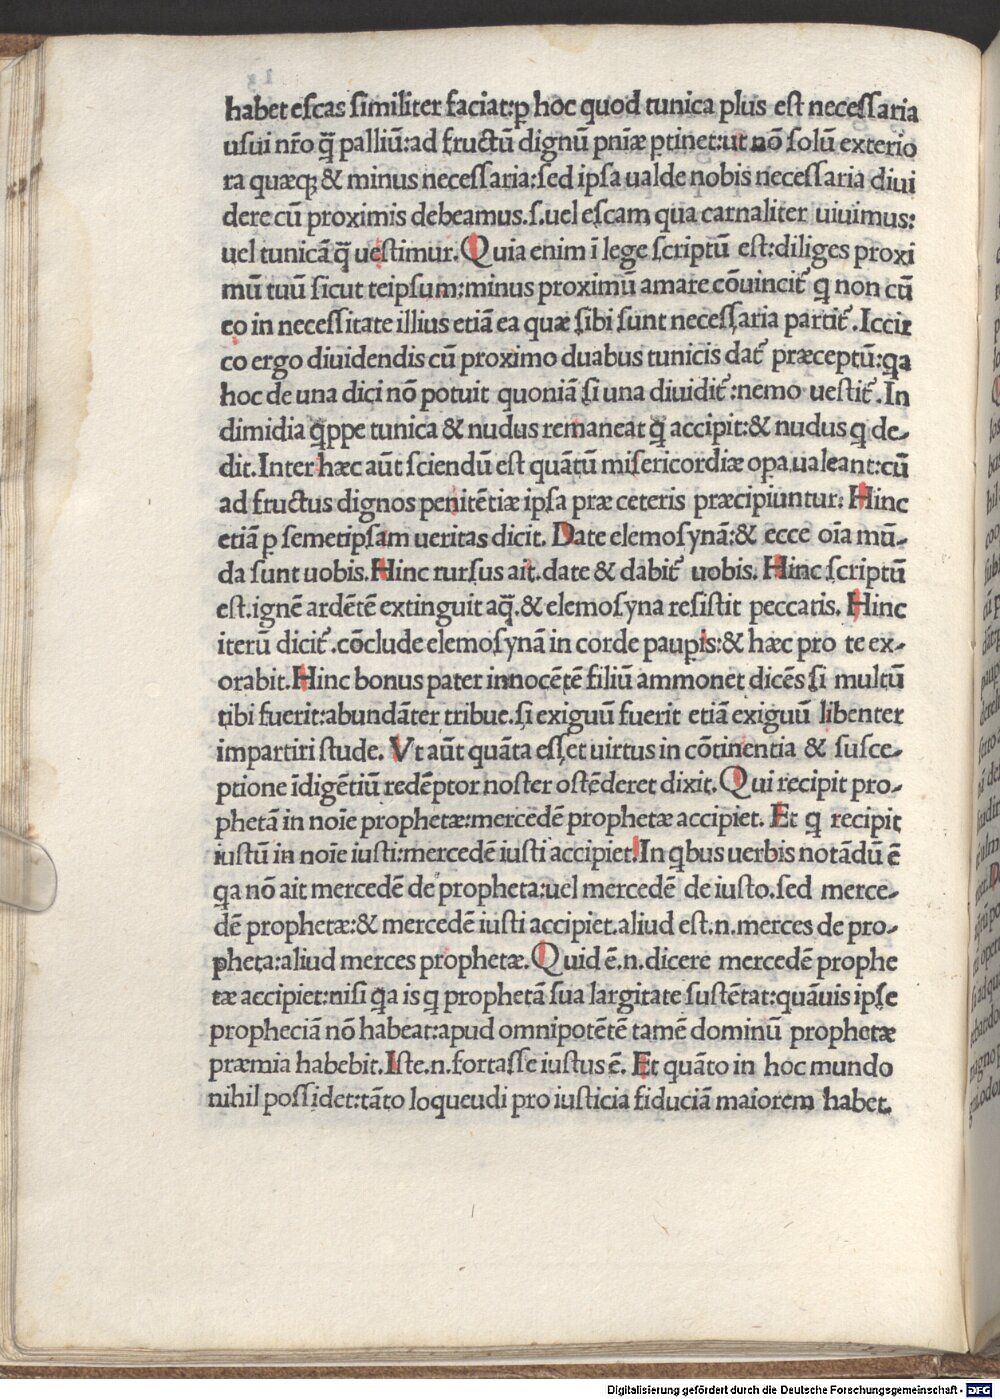 habet eſcas ſimiliter faciat:p̱ hoc quod tunica plus eſt neceſſaria
uſui nr̄o q̄̃ palliū:ad fructū dignū pn̄iæ ꝑtinet:ut nō ſolū exterio
ra quæqꝫ & minus neceſſaria:ſed ipſa ualde nobis neceſſaria diui
dere cū proximis debeamus.ſ.uel eſcam qua carnaliter uiuimus:
uel tunicā q̄ ueſtimur. Quia enim ī lege ſcriptū eſt:diliges proxi
mū tuū ſicut teipſum:minus proximū amare cōuincit᷑ q non cū
eo in neceſſitate illius etiā ea quæ ſibi ſunt neceſſaria partit᷑. Iccir
co ergo diuidendis cū proximo duabus tunicis dat᷑ præceptū:qa
hoc de una dici nō potuit quoniā ſi una diuidit᷑:nemo ueſtit᷑. In
dimidia q̄ppe tunica & nudus remaneat q̄ accipit:& nudus q de-
dit. Inter hæc aūt ſciendū eſt quātū miſericordiæ opa ualeant:cū
ad fructus dignos penitētiæ ipſa præ ceteris præcipiuntur. Hinc
etiā p ſemetipſam ueritas dicit. Date elemoſynā:& ecce oīa mū-
da ſunt uobis. Hinc rurſus ait. date & dabit᷑ uobis. Hinc ſcriptū
eſt.ignē ardētē extinguit aq̄.& elemoſyna reſiſtit peccatis. Hinc
iterū dicit᷑.cōclude elemoſynā in corde paupis:& hæc pro te ex-
orabit. Hinc bonus pater innocētē filiū ammonet dicēs ſi multū
tibi fuerit:abundāter tribue.ſi exiguū fuerit etiā exiguū libenter
impartiri ſtude. Vt aūt quāta eſſet uirtus in cōtinentia & ſuſce-
ptione īdigētiū redēptor noſter oſtēderet dixit. Qui recipit pro-
phetā in noīe prophetæ:mercedē prophetæ accipiet. Et q recipit
iuſtū in noīe iuſti:mercedē iuſti accipiet. In qbus uerbis notādū ē
qa nō ait mercedē de propheta:uel mercedē de iuſto.ſed merce-
dē prophetæ:& mercedē iuſti accipiet.aliud eſt.n.merces de pro-
pheta:aliud merces prophetæ. Quid ē.n.dicere mercedē prophe
tæ accipiet:niſi q̄a is q prophetā ſua largitate ſuſtētat:quāuis ipſe
propheciā nō habeat:apud omnipotētē tamē dominū prophetæ
præmia habebit. Iſte.n.fortaſſe iuſtus ē. Et quāto in hoc mundo
nihil poſſidet:tāto loqueudi pro iuſticia fiduciā maiorem habet.
Digitalisierung gefördert durch die Deutsche Forschungsgemeinschaft - DFG